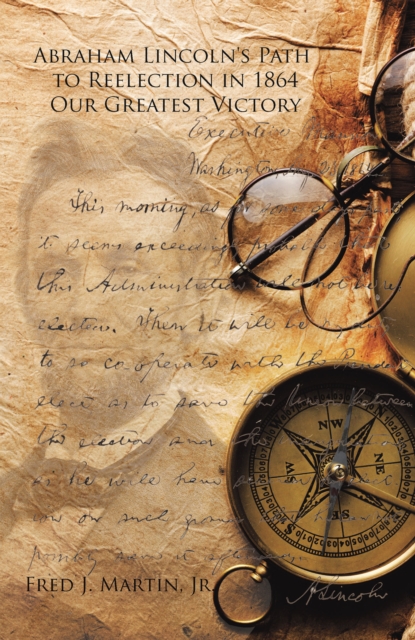 ABRAHAM LINCOLN'S PATH
TO REELECTION IN 1864
OUR GREATEST VICTORY
Executive
Washington,
This morning, as
it seems exceedingly probable that
this Administration will not be re-
elected. Then it will be my
to so co-operate with the Presi
elect as to save the Union between
the election and the
as he will have
ion on such ground
possibly save it afterwards
NW
NE
SW
SE
FRED J. MARTIN, JR.
A. Lincoln